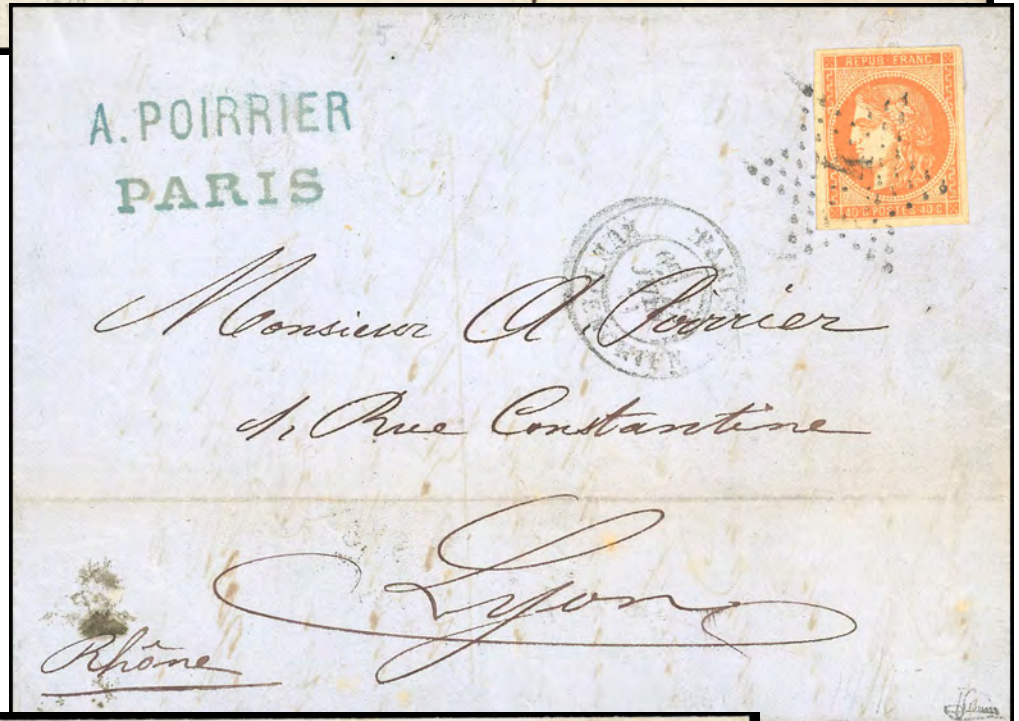 A. POIRRIER
PARIS
REPUB FRANC
40 C POSTES 40 C
4
PARIS
Monsieur A. Poirrier
1, Rue Constantine
Lyon
Rhône